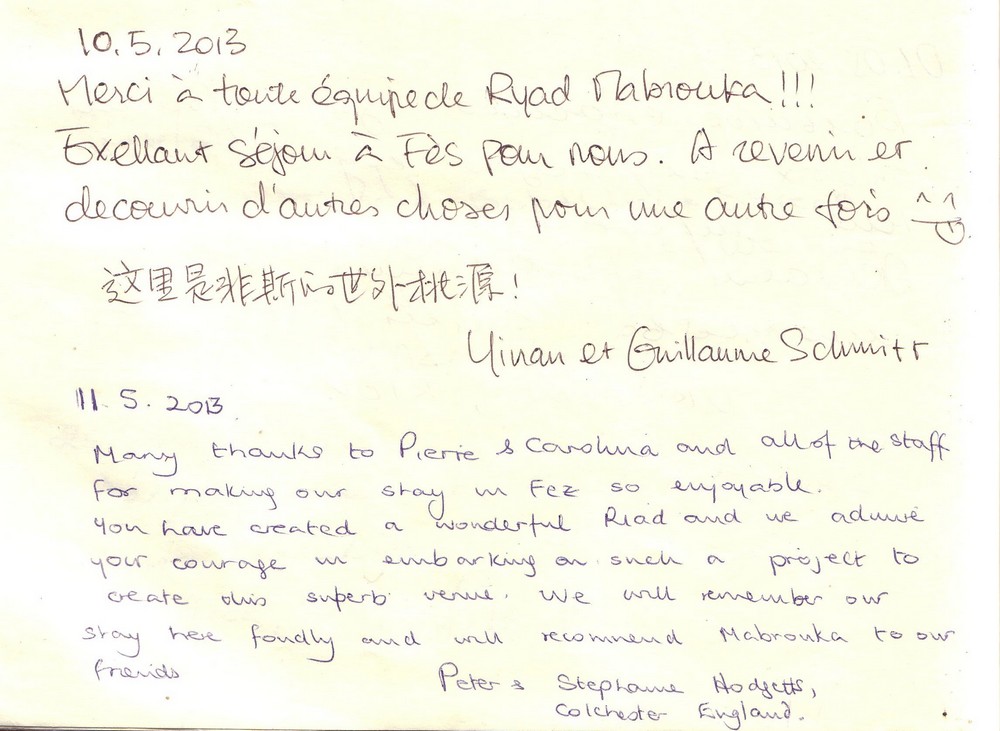 10.5.2013
Merci à toute équipe de Ryad Mabrouka!!!
Exellant séjour à Fès pour nous. A revenir et
decouvrir d'autres choses pour une autre fois ^^
这里是非斯的世外桃源!
Yinan et Guillaume Schmitt
11.5.2013
Many thanks to Pierre & Carolina and all of the staff
for making our stay in Fez so enjoyable.
You have created a wonderful Riad and we admire
your courage in embarking on such a project to
create this superb venue. We will remember our
stay here fondly and will recommend Mabrouka to our
friends
Peter & Stephanie Hodgetts,
Colchester England.